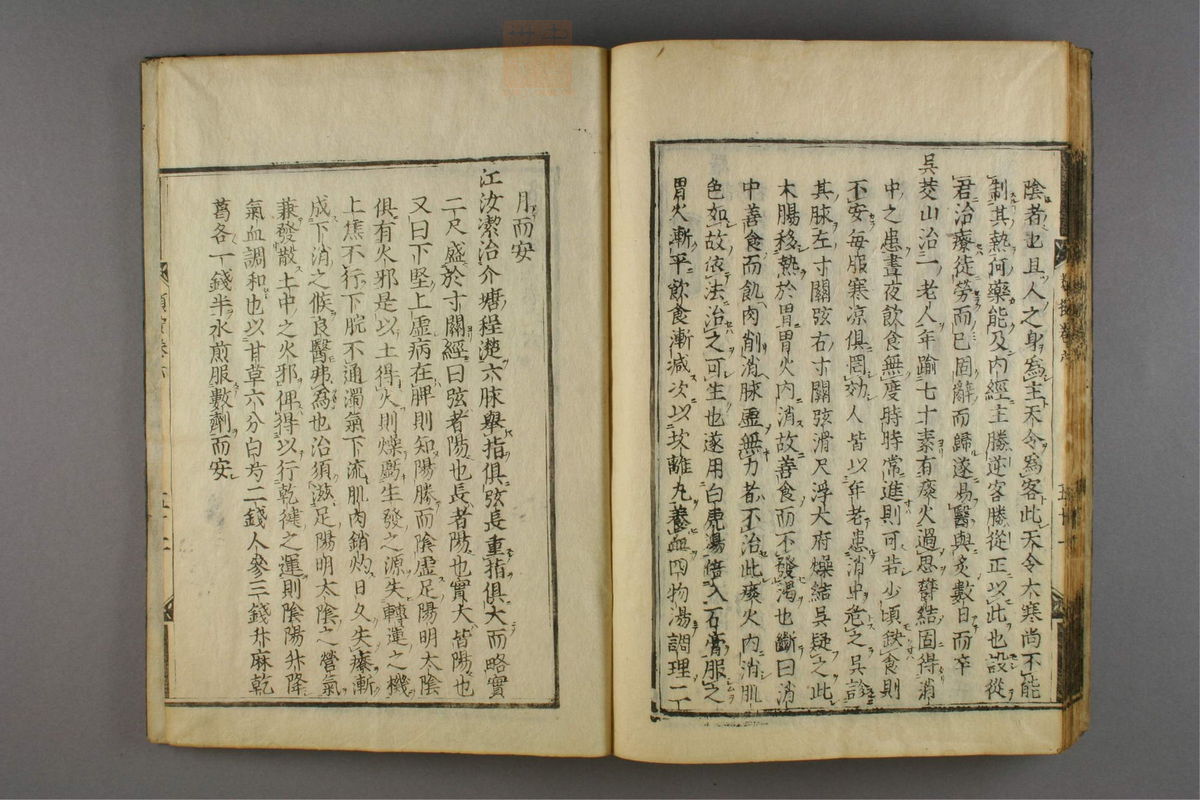 陰者也且人之身為主天令為客此天令大寒尚不能
制其熱何藥能及內經主勝逆客勝從正以此也設從
君治療徒勞而已固辭而歸遂易醫與灸數日而卒
吳茭山治一老人年踰七十素有痰火過思欝結固得消
中之患晝夜飲食無度時時常進則可若少頃缺食則
不安每服寒凉俱罔効人皆以年老患消中危之吳診
其脉左寸關弦右寸關弦滑尺浮大府燥結吳疑之此
大腸移熱於胃胃火內消故善食而不發渴也斷曰消
中善食而飢肉削消脉虛無力者不治此痰火內消肌
色如故依法治之可生也遂用白虎湯倍入石膏服之
胃火漸平飲食漸減次以坎離丸養血四物湯調理二
月而安
江汝潔治介塘程㴑六脉舉指俱弦長重指俱大而略實
二尺盛於寸關經曰弦者陽也長者陽也實大皆陽也
又曰下堅上虛病在脾則知陽勝而陰虛足陽明太陰
俱有火邪是以土得火則燥虧生發之源失轉運之機
上焦不行下脘不通濁氣下流肌肉銷灼日久失療漸
成下消之候良醫弗為也治須滋足陽明太陰之營氣
兼發散上中之火邪俾得以行乾健之運則陰陽升降
氣血調和也以甘草六分白芍二錢人參三錢升麻乾
葛各一錢半水煎服數劑而安